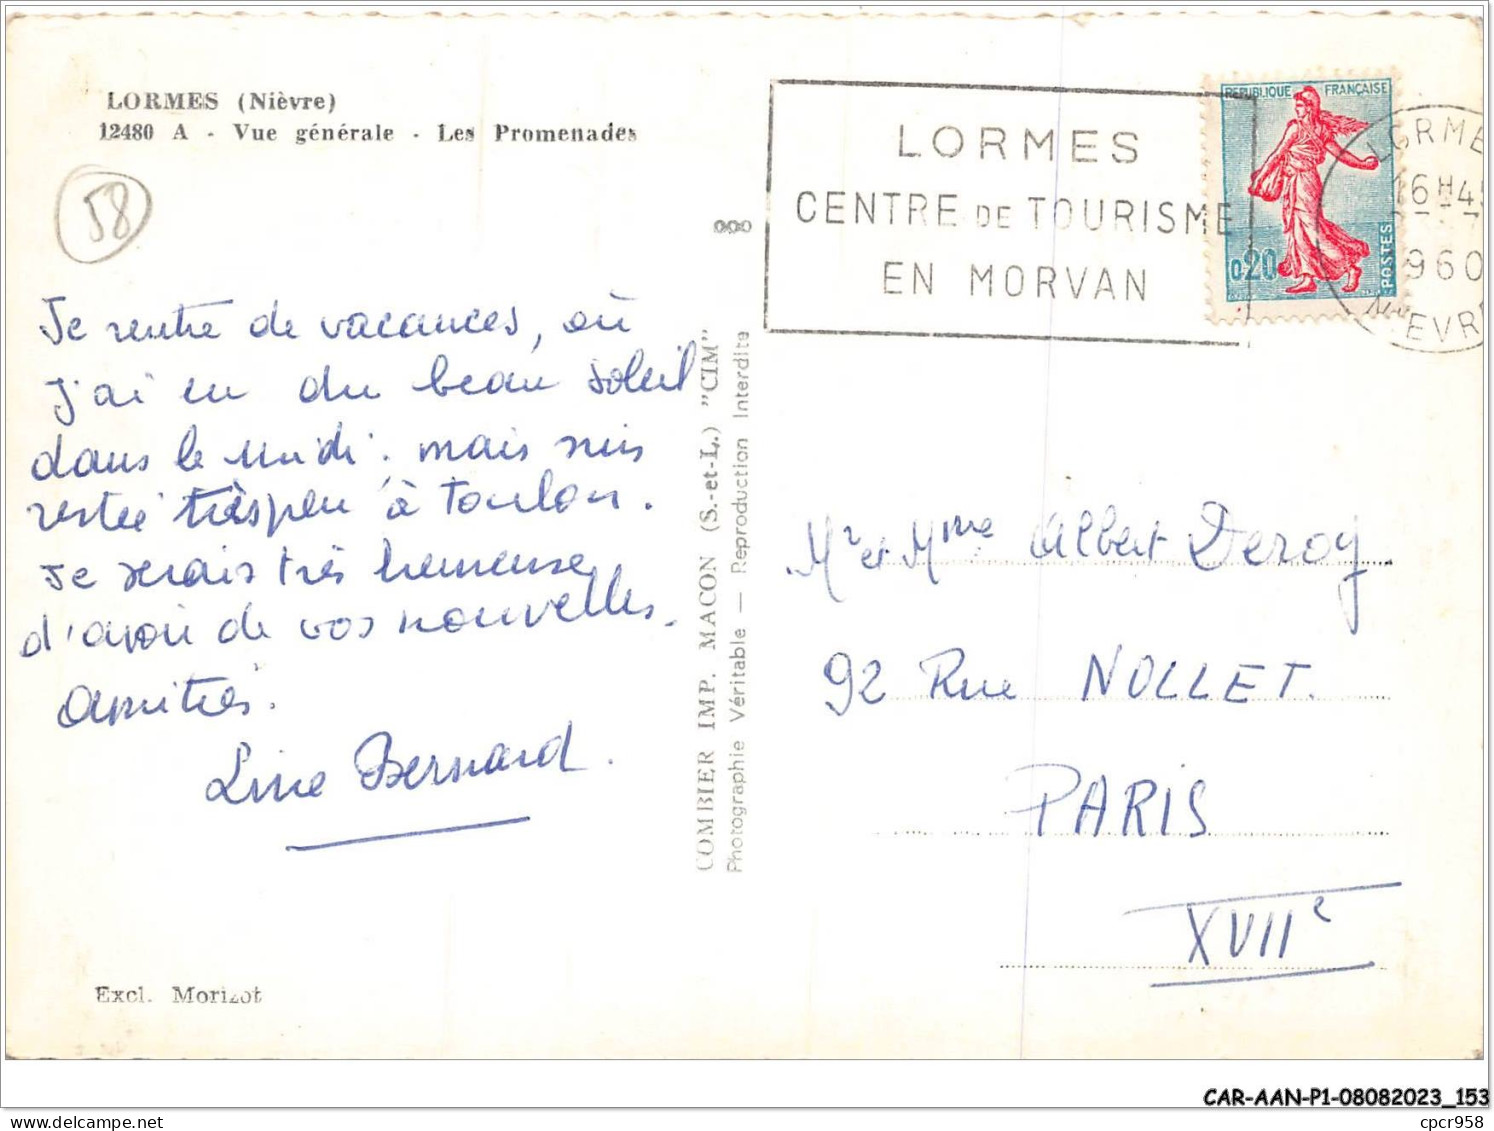 LORMES (Nièvre)
12480 A - Vue générale - Les Promenades
58
Je rentre de vacances, où
j'ai eu du beau soleil
dans le midi, mais suis
restée très peu à Toulon.
Je serais très heureuse
d'avoir de vos nouvelles.
Amitiés.
Line Bernard.
Excl. Morizot
COMBIER IMP. MACON (S.-et-L.) "CIM"
Photographie Véritable — Reproduction Interdite
LORMES
CENTRE DE TOURISME
EN MORVAN
REPUBLIQUE FRANÇAISE
0,20
POSTES
LORME
16H45
1960
NIEVR
Mr et Mme Albert Deroy
92 Rue NOLLET.
PARIS
XVIIe
CAR-AAN-P1-08082023_153
cpcr958